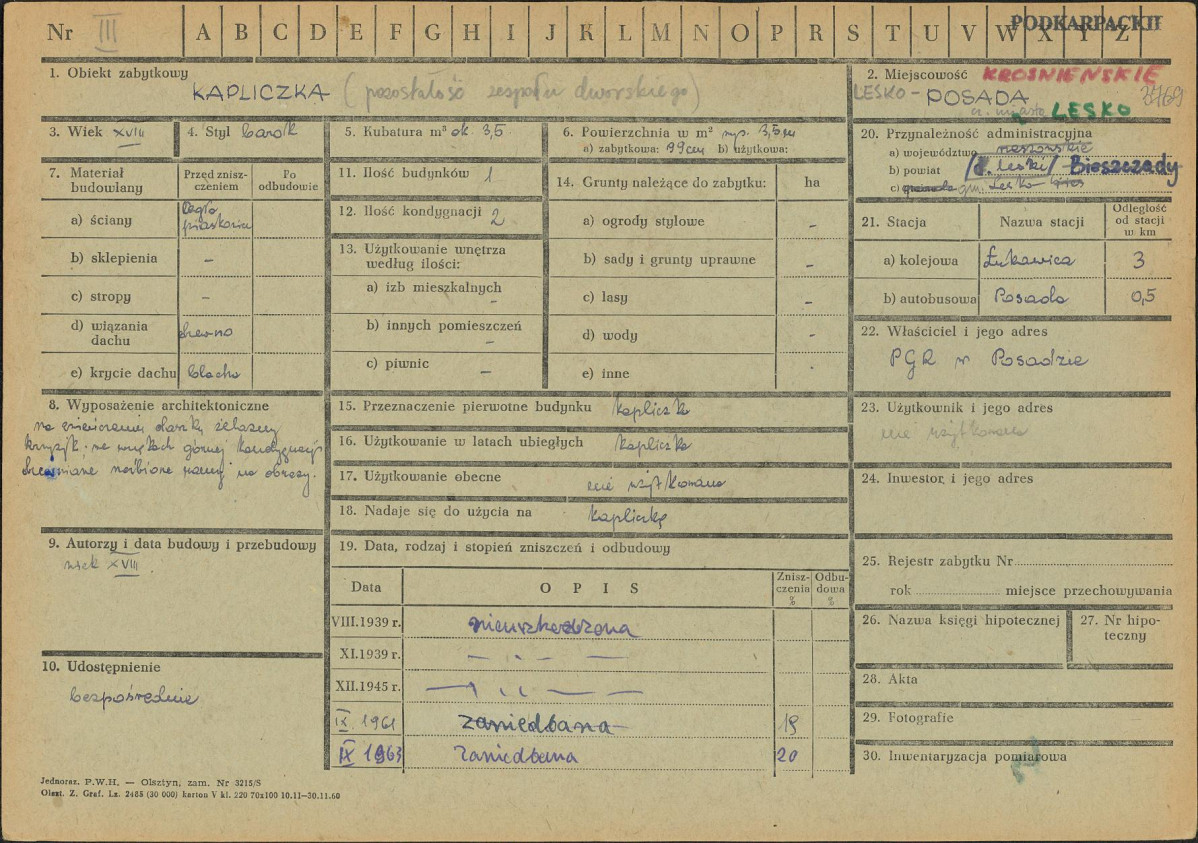 Nr III A B C D E F G H I J K L M N O P R S T U V W X Y Z
PODKARPACKIE
1. Obiekt zabytkowy
KAPLICZKA (pozostałość zespołu dworskiego)
2. Miejscowość KROŚNIEŃSKIE
LESKO - POSADA
cz. miasta LESKO
3. Wiek XVIII
4. Styl barok
5. Kubatura m³ ok. 3,5
6. Powierzchnia w m²
a) zabytkowa: b) użytkowa:
7. Materiał budowlany
Przed zniszczeniem
Po odbudowie
a) ściany cegła piaskowiec
b) sklepienia –
c) stropy –
d) wiązania dachu drewno
e) krycie dachu blacha
8. Wyposażenie architektoniczne
na zwieńczeniu daszku żelazny
krzyżyk. we wnękach górnej kondygnacji
drewniane rzeźbione ramy na obrazy.
9. Autorzy i data budowy i przebudowy
wiek XVIII.
10. Udostępnienie
bezpośrednie
11. Ilość budynków 1
12. Ilość kondygnacji 2
13. Użytkowanie wnętrza
według ilości:
a) izb mieszkalnych –
b) innych pomieszczeń –
c) piwnic –
14. Grunty należące do zabytku: ha
a) ogrody stylowe –
b) sady i grunty uprawne –
c) lasy –
d) wody -
e) inne
15. Przeznaczenie pierwotne budynku kapliczka
16. Użytkowanie w latach ubiegłych kapliczka
17. Użytkowanie obecne nie użytkowana
18. Nadaje się do użycia na kapliczkę
19. Data, rodzaj i stopień zniszczeń i odbudowy
Data OPIS Zniszczenia % Odbudowa %
VIII.1939 r. nieuszkodzona
XI.1939 r. — „ —
XII.1945 r. — „ —
IX. 1961 zaniedbana 15
IX 1963 zaniedbana 20
20. Przynależność administracyjna
a) województwo rzeszowskie
b) powiat /d. leski/ Bieszczady
c) gm. Lesko
21. Stacja Nazwa stacji Odległość od stacji w km
a) kolejowa Łukawica 3
b) autobusowa Posada 0,5
22. Właściciel i jego adres
PGR w Posadzie
23. Użytkownik i jego adres
nie użytkowana
24. Inwestor i jego adres
25. Rejestr zabytku Nr
rok miejsce przechowywania
26. Nazwa księgi hipotecznej
27. Nr hipoteczny
28. Akta
29. Fotografie
30. Inwentaryzacja pomiarowa
Jednoraz. P.W.H. — Olsztyn, zam. Nr 3215/S
Olszt. Z. Graf. Lz. 2485 (30 000) karton V kl. 220 70x100 10.11—30.11.60